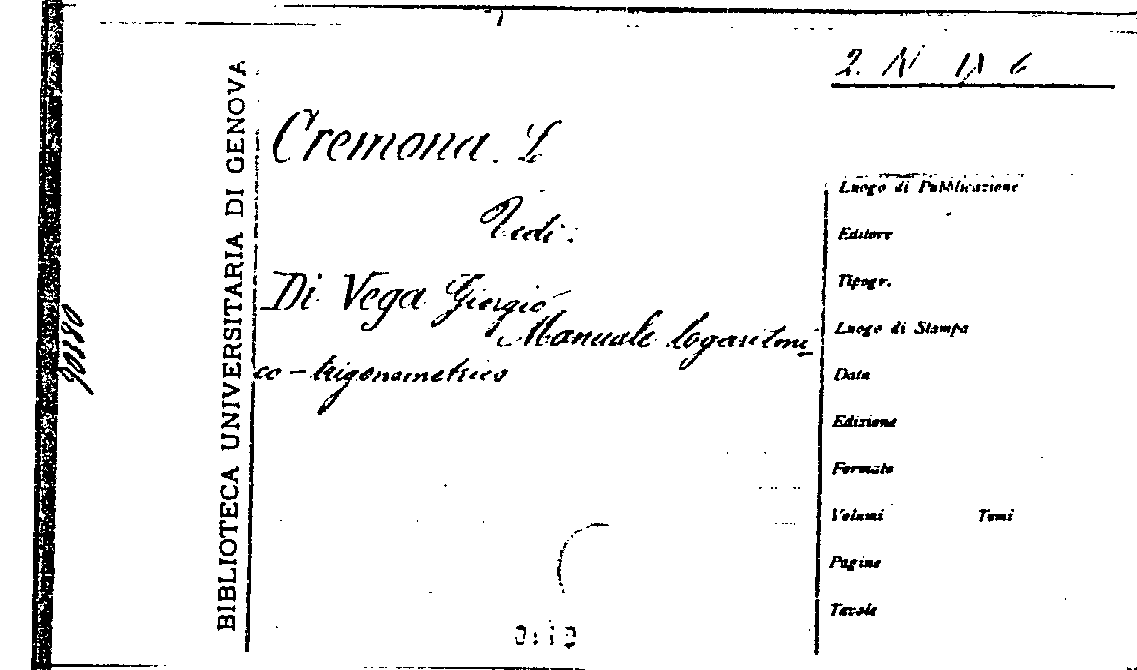 2. N
Cremona. L
Vedi:
Di Vega Giorgio
Manuale logaritmi_
co-trigonometrico
BIBLIOTECA UNIVERSITARIA DI GENOVA
90380
Luogo di Pubblicazione
Editore
Tipogr.
Luogo di Stampa
Data
Edizione
Formato
Volumi Tomi
Pagine
Tavole